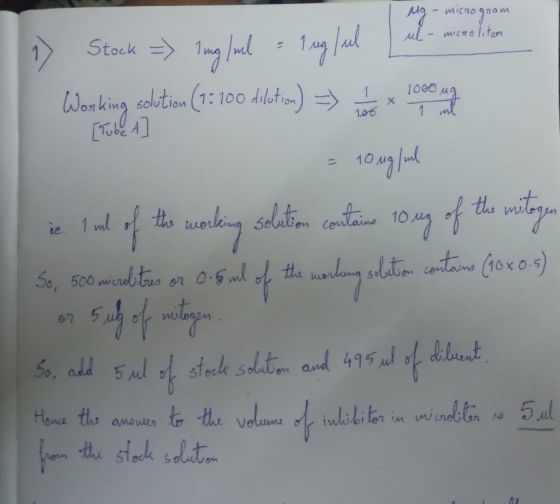 ug - microgram
ul - microliter
1) Stock => 1mg/ml = 1ug/ul
Working solution (1:100 dilution) => 1/100 × 1000 ug/1 ml
[Tube 1]
= 10 ug/ml
ie 1 ml of the working solution contains 10 ug of the mitogen
So, 500 microlitres or 0.5 ml of the working solution contains (10 x 0.5)
or 5 ug of mitogen.
So, add 5 ul of stock solution and 495 ul of diluent.
Hence the answer to the volume of inhibitor in microliter is 5 ul
from the stock solution